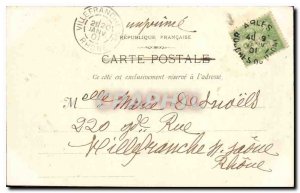 imprimé
RÉPUBLIQUE FRANÇAISE
CARTE POSTALE
Ce côté est exclusivement réservé à l'adresse.
VILLEFRANCHE
JANV
01
RHÔNE
ARLES
Melle Marie
220 gde Rue
Villefranche s/ Saône
Rhône